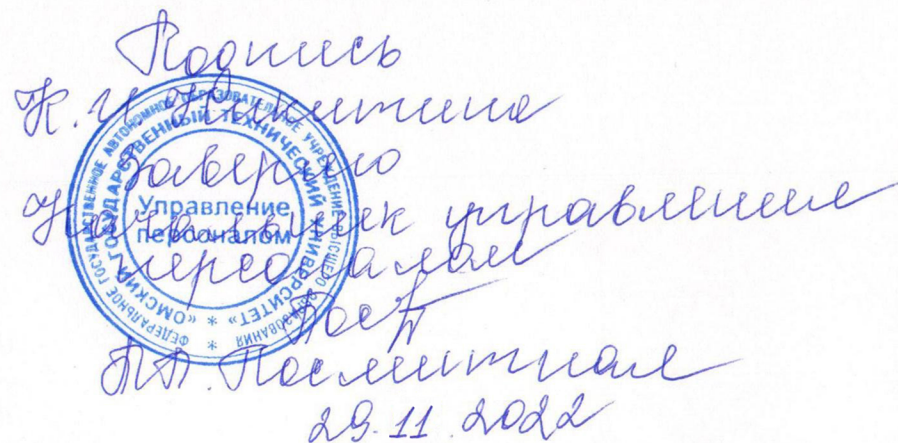 Подпись
К.И. Никитина
Заверяю
Начальник управления
персоналом
29.11.2022
ФЕДЕРАЛЬНОЕ ГОСУДАРСТВЕННОЕ АВТОНОМНОЕ ОБРАЗОВАТЕЛЬНОЕ УЧРЕЖДЕНИЕ ВЫСШЕГО ОБРАЗОВАНИЯ *
«ОМСКИЙ ГОСУДАРСТВЕННЫЙ ТЕХНИЧЕСКИЙ УНИВЕРСИТЕТ» *
Управление
персоналом